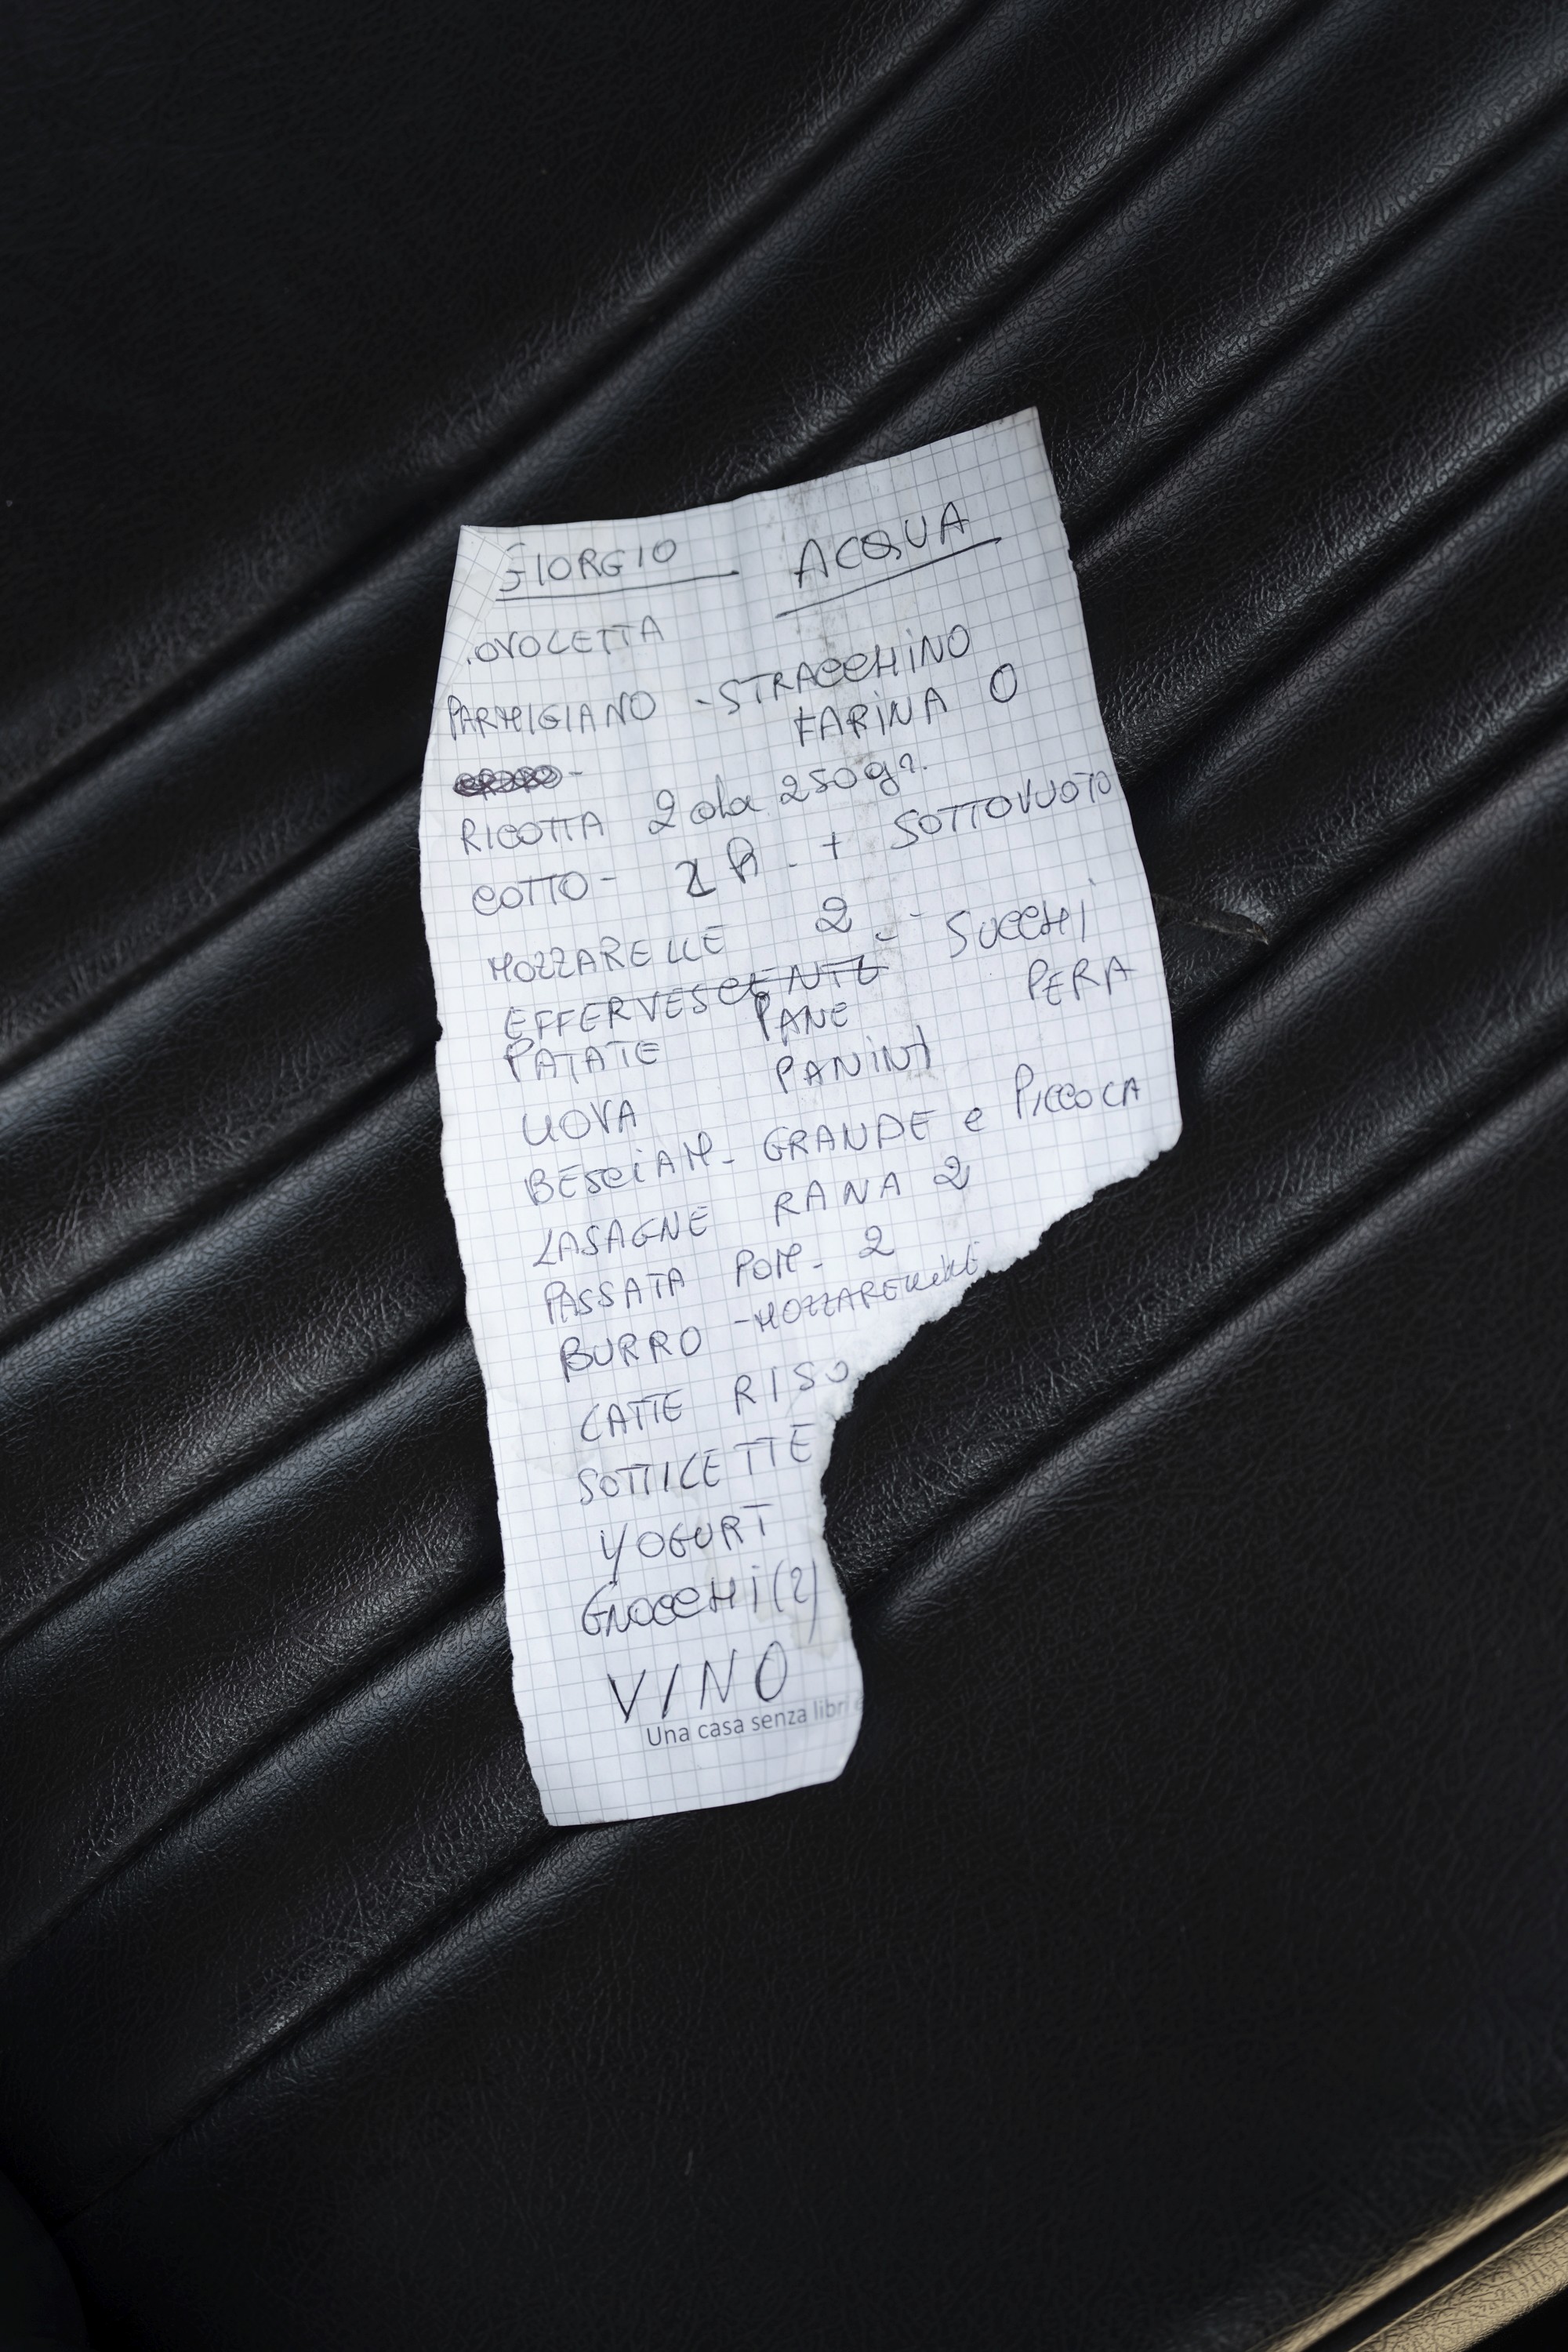 GIORGIO ACQUA
.OVOLETTA
PARMIGIANO - STRACCHINO
FARINA 0
RICOTTA 2 da 250 gr.
COTTO - - + SOTTOVUOTO
MOZZARELLE 2 - - SUCCHI
EFFERVESCENTE PERA
PATATE PANE
UOVA PANINI
BESCIAM- GRANDE e PICCOLA
LASAGNE RANA 2
PASSATA POM- 2
BURRO - MOZZARELLINE
LATTE RISO
SOTTILETTE
YOGURT
GNOCCHI (2)
VINO
Una casa senza libri è